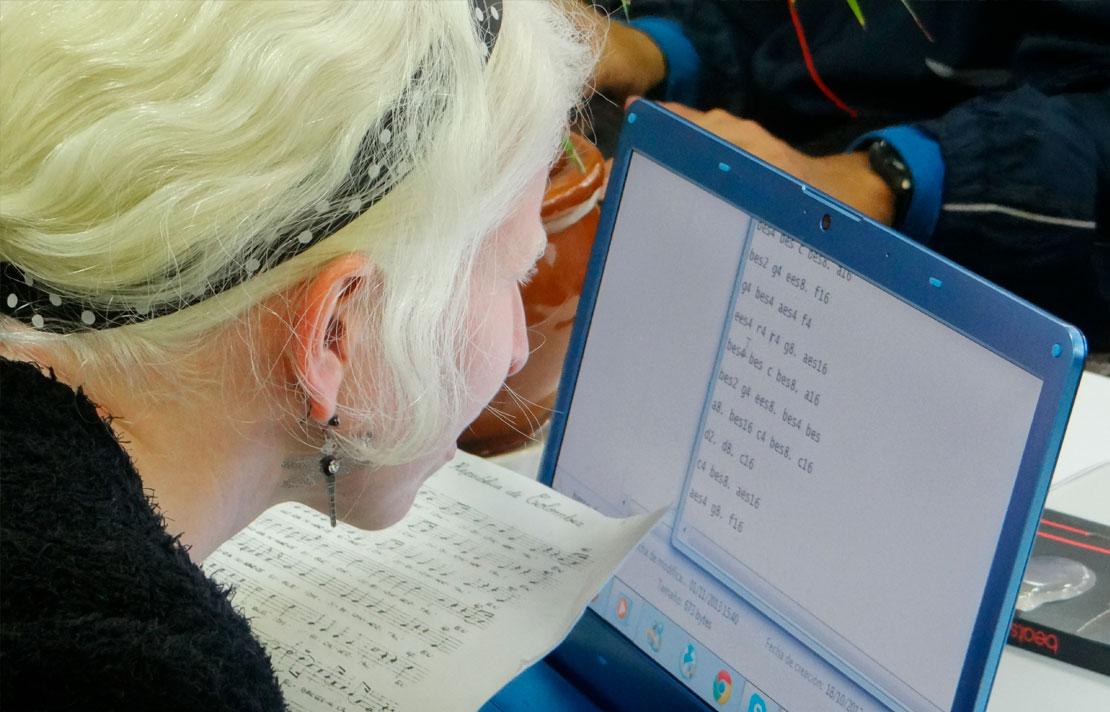 bes4 bes c bes8. a16
bes2 g4 ees8. f16
g4 bes4 aes4 f4
ees4 r4 r4 g8. aes16
bes4 bes c bes8. a16
bes2 g4 ees8. bes4 bes
a8. bes16 c4 bes8. c16
d2. d8. c16
c4 bes8. aes16
aes4 g8. f16
República de Colombia
de modifica... 01/11/2013 15:40
Tamaño: 673 bytes
Fecha de creación: 18/10/201
beats